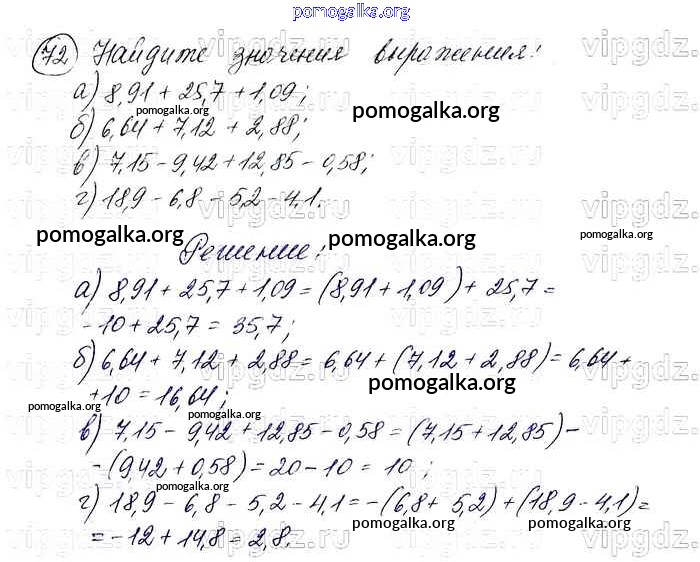 pomogalka.org
72 Найдите значения выражения:
а) 8,91 + 25,7 + 1,09;
pomogalka.org
pomogalka.org
б) 6,64 + 7,12 + 2,88;
в) 7,15 - 9,42 + 12,85 - 0,58;
г) 18,9 - 6,8 - 5,2 - 4,1.
pomogalka.org
pomogalka.org
pomogalka.org
Решение:
а) 8,91 + 25,7 + 1,09 = (8,91 + 1,09) + 25,7 =
- 10 + 25,7 = 35,7;
б) 6,64 + 7,12 + 2,88 = 6,64 + (7,12 + 2,88) = 6,64 +
pomogalka.org
+ 10 = 16,64;
pomogalka.org
pomogalka.org
в) 7,15 - 9,42 + 12,85 - 0,58 = (7,15 + 12,85) -
- (9,42 + 0,58) = 20 - 10 = 10;
pomogalka.org
г) 18,9 - 6,8 - 5,2 - 4,1 = -(6,8 + 5,2) + (18,9 - 4,1) =
pomogalka.org
pomogalka.org
= -12 + 14,8 = 2,8.
vipgdz.ru